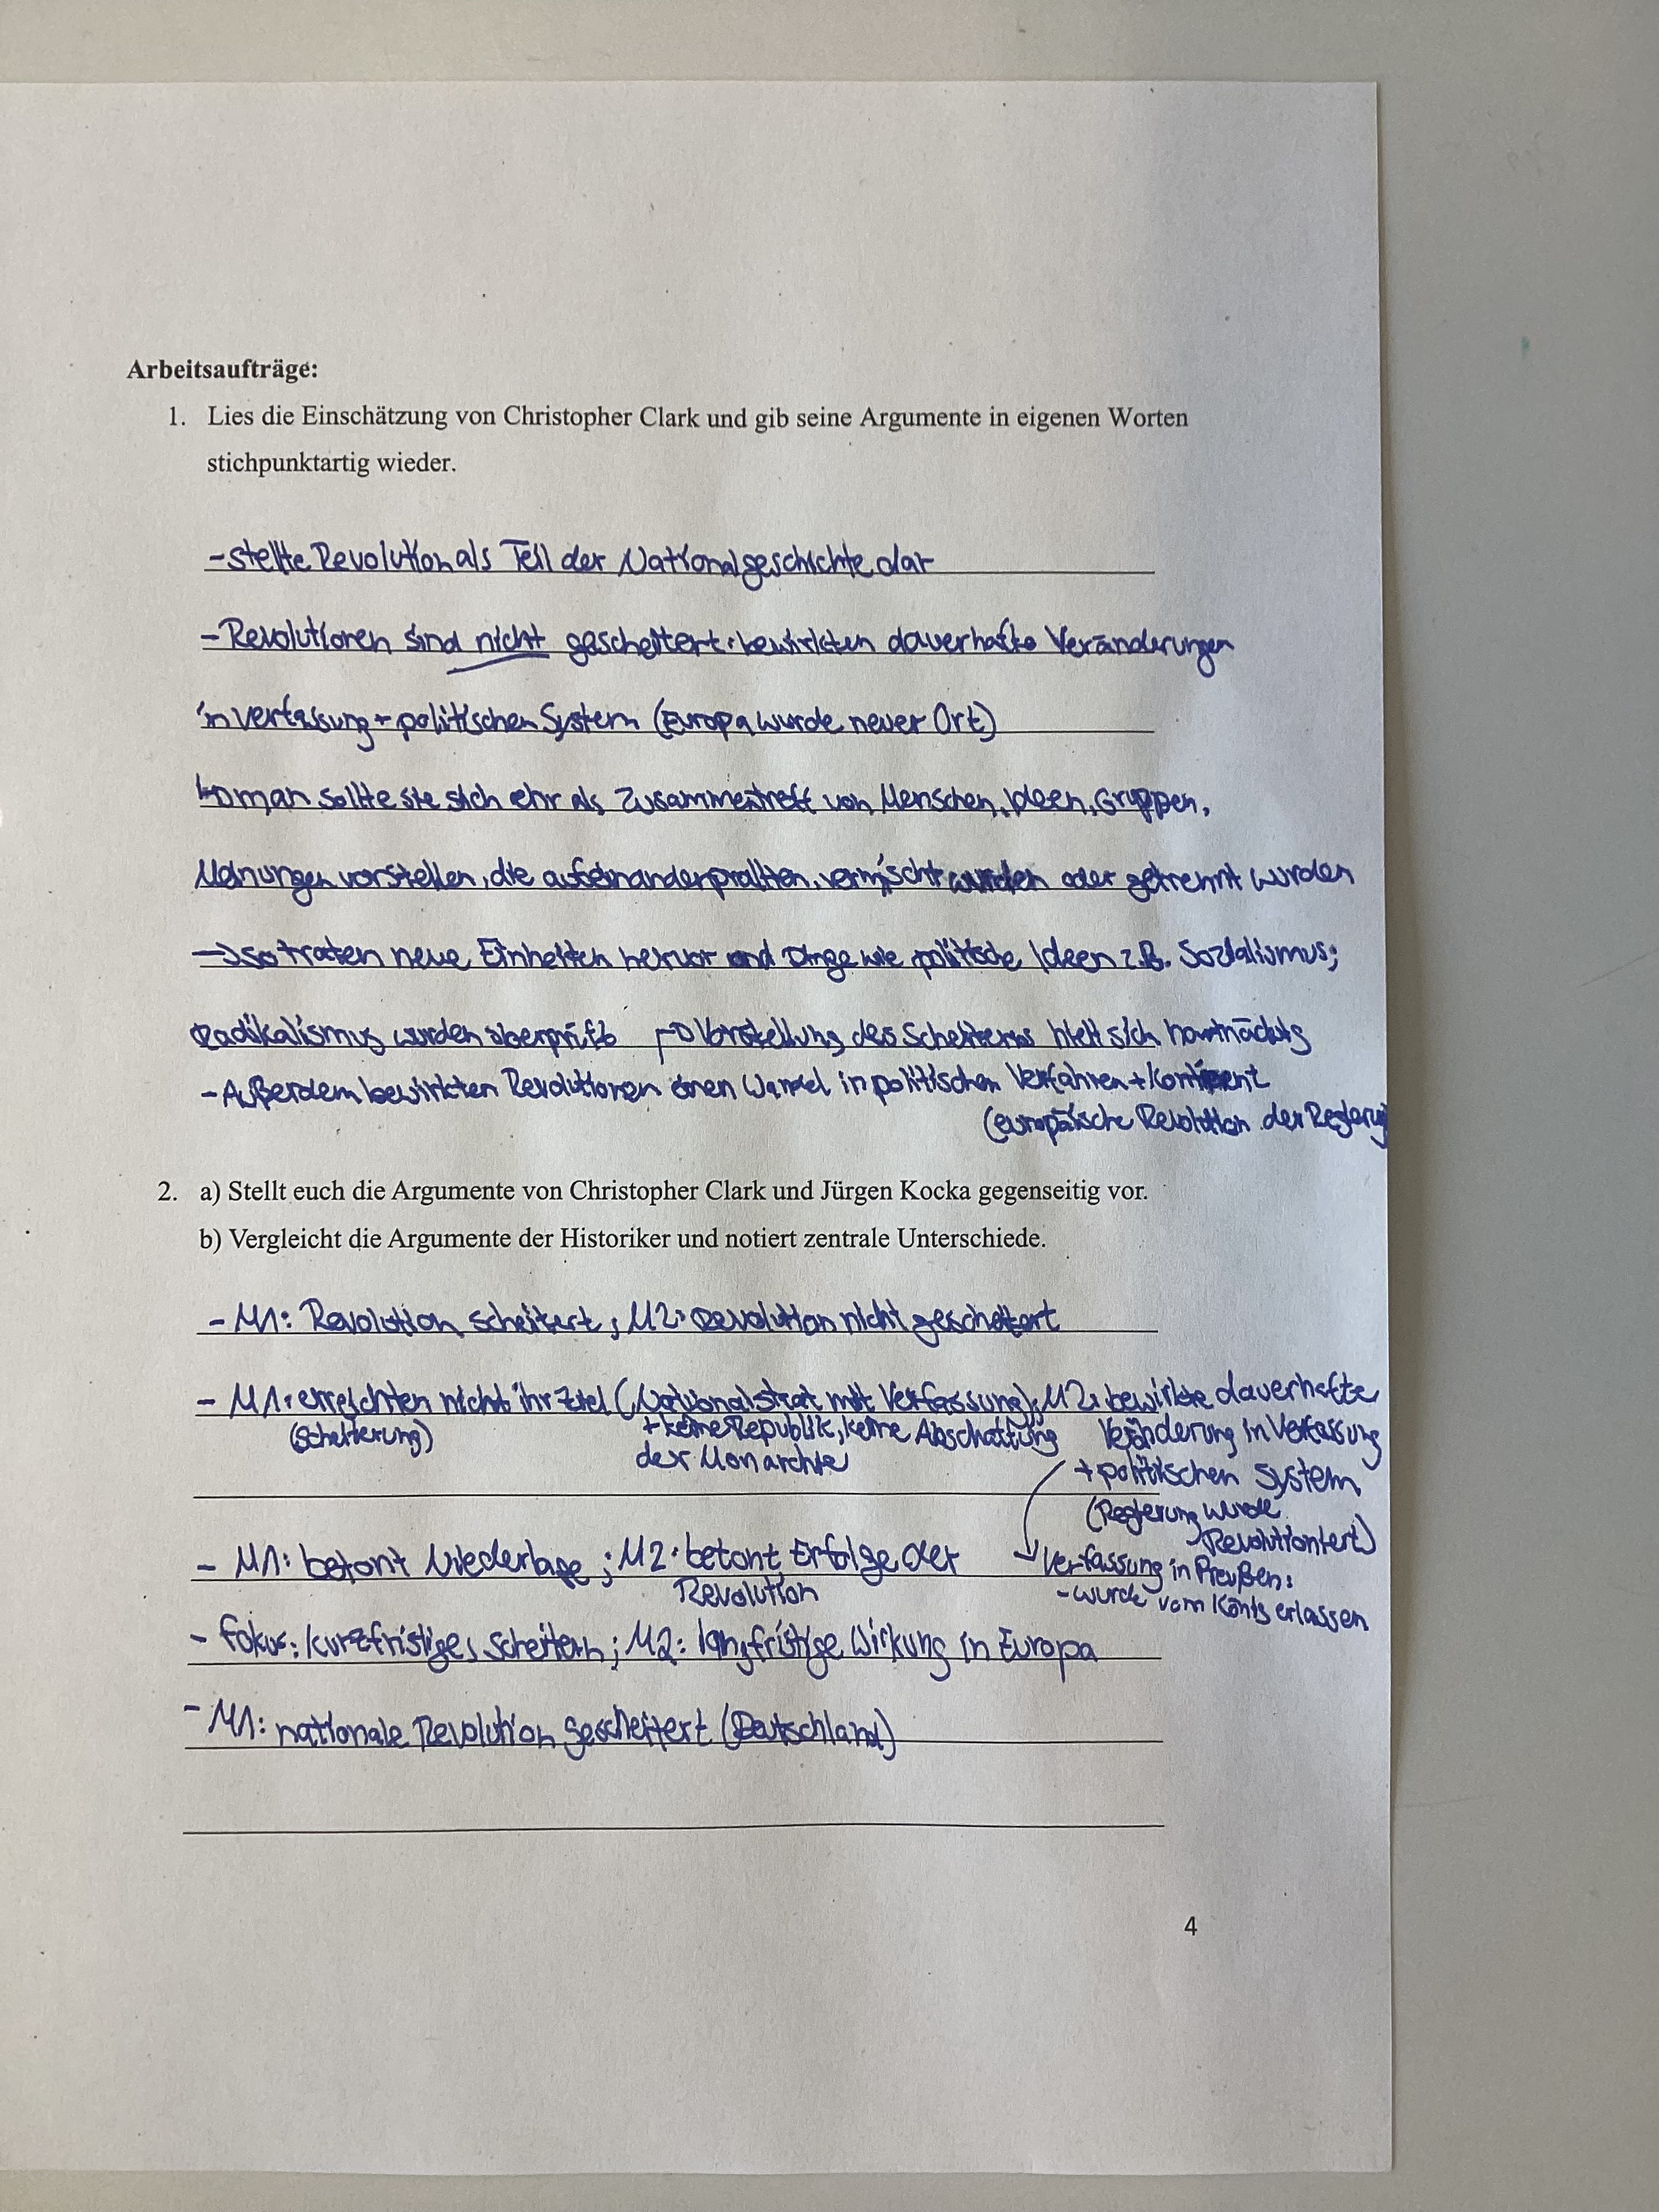 Arbeitsaufträge:
1. Lies die Einschätzung von Christopher Clark und gib seine Argumente in eigenen Worten
stichpunktartig wieder.
- stellte Revolution als Teil der Nationalgeschichte dar
- Revolutionen sind nicht gescheitert: bewirkten dauerhafte Veränderungen
in Verfassung + politischen System (Europa wurde neuer Ort)
↳ man sollte sie sich ehr als Zusammentreff von Menschen, Ideen, Gruppen,
Meinungen vorstellen, die aufeinanderprallten, vermischt wurden oder getrennt wurden
→ so traten neue Einheiten hervor und Dinge wie politische Ideen z.B. Sozialismus;
Radikalismus wurden überprüft → Vorstellung des Scheiterns hielt sich hartnäckig
- Außerdem bewirkten Revolutionen einen Wandel in politischen Verfahren + Kontinent
(europäische Revolution der Regierung)
2. a) Stellt euch die Argumente von Christopher Clark und Jürgen Kocka gegenseitig vor.
b) Vergleicht die Argumente der Historiker und notiert zentrale Unterschiede.
- M1: Revolution scheitert; M2: Revolution nicht gescheitert
- M1: erreichten nicht ihr Ziel (Nationalstaat mit Verfassung); M2: bewirkte dauerhafte
(Scheiterung) + keine Republik, keine Abschaffung Veränderung in Verfassung
der Monarchie + politischen System
(Regierung wurde
Revolutioniert)
- M1: betont Niederlage; M2: betont Erfolge der → Verfassung in Preußen:
Revolution - wurde vom König erlassen
- Fokus: kurzfristiges Scheitern; M2: langfristige Wirkung in Europa
- M1: nationale Revolution gescheitert (Deutschland)
4